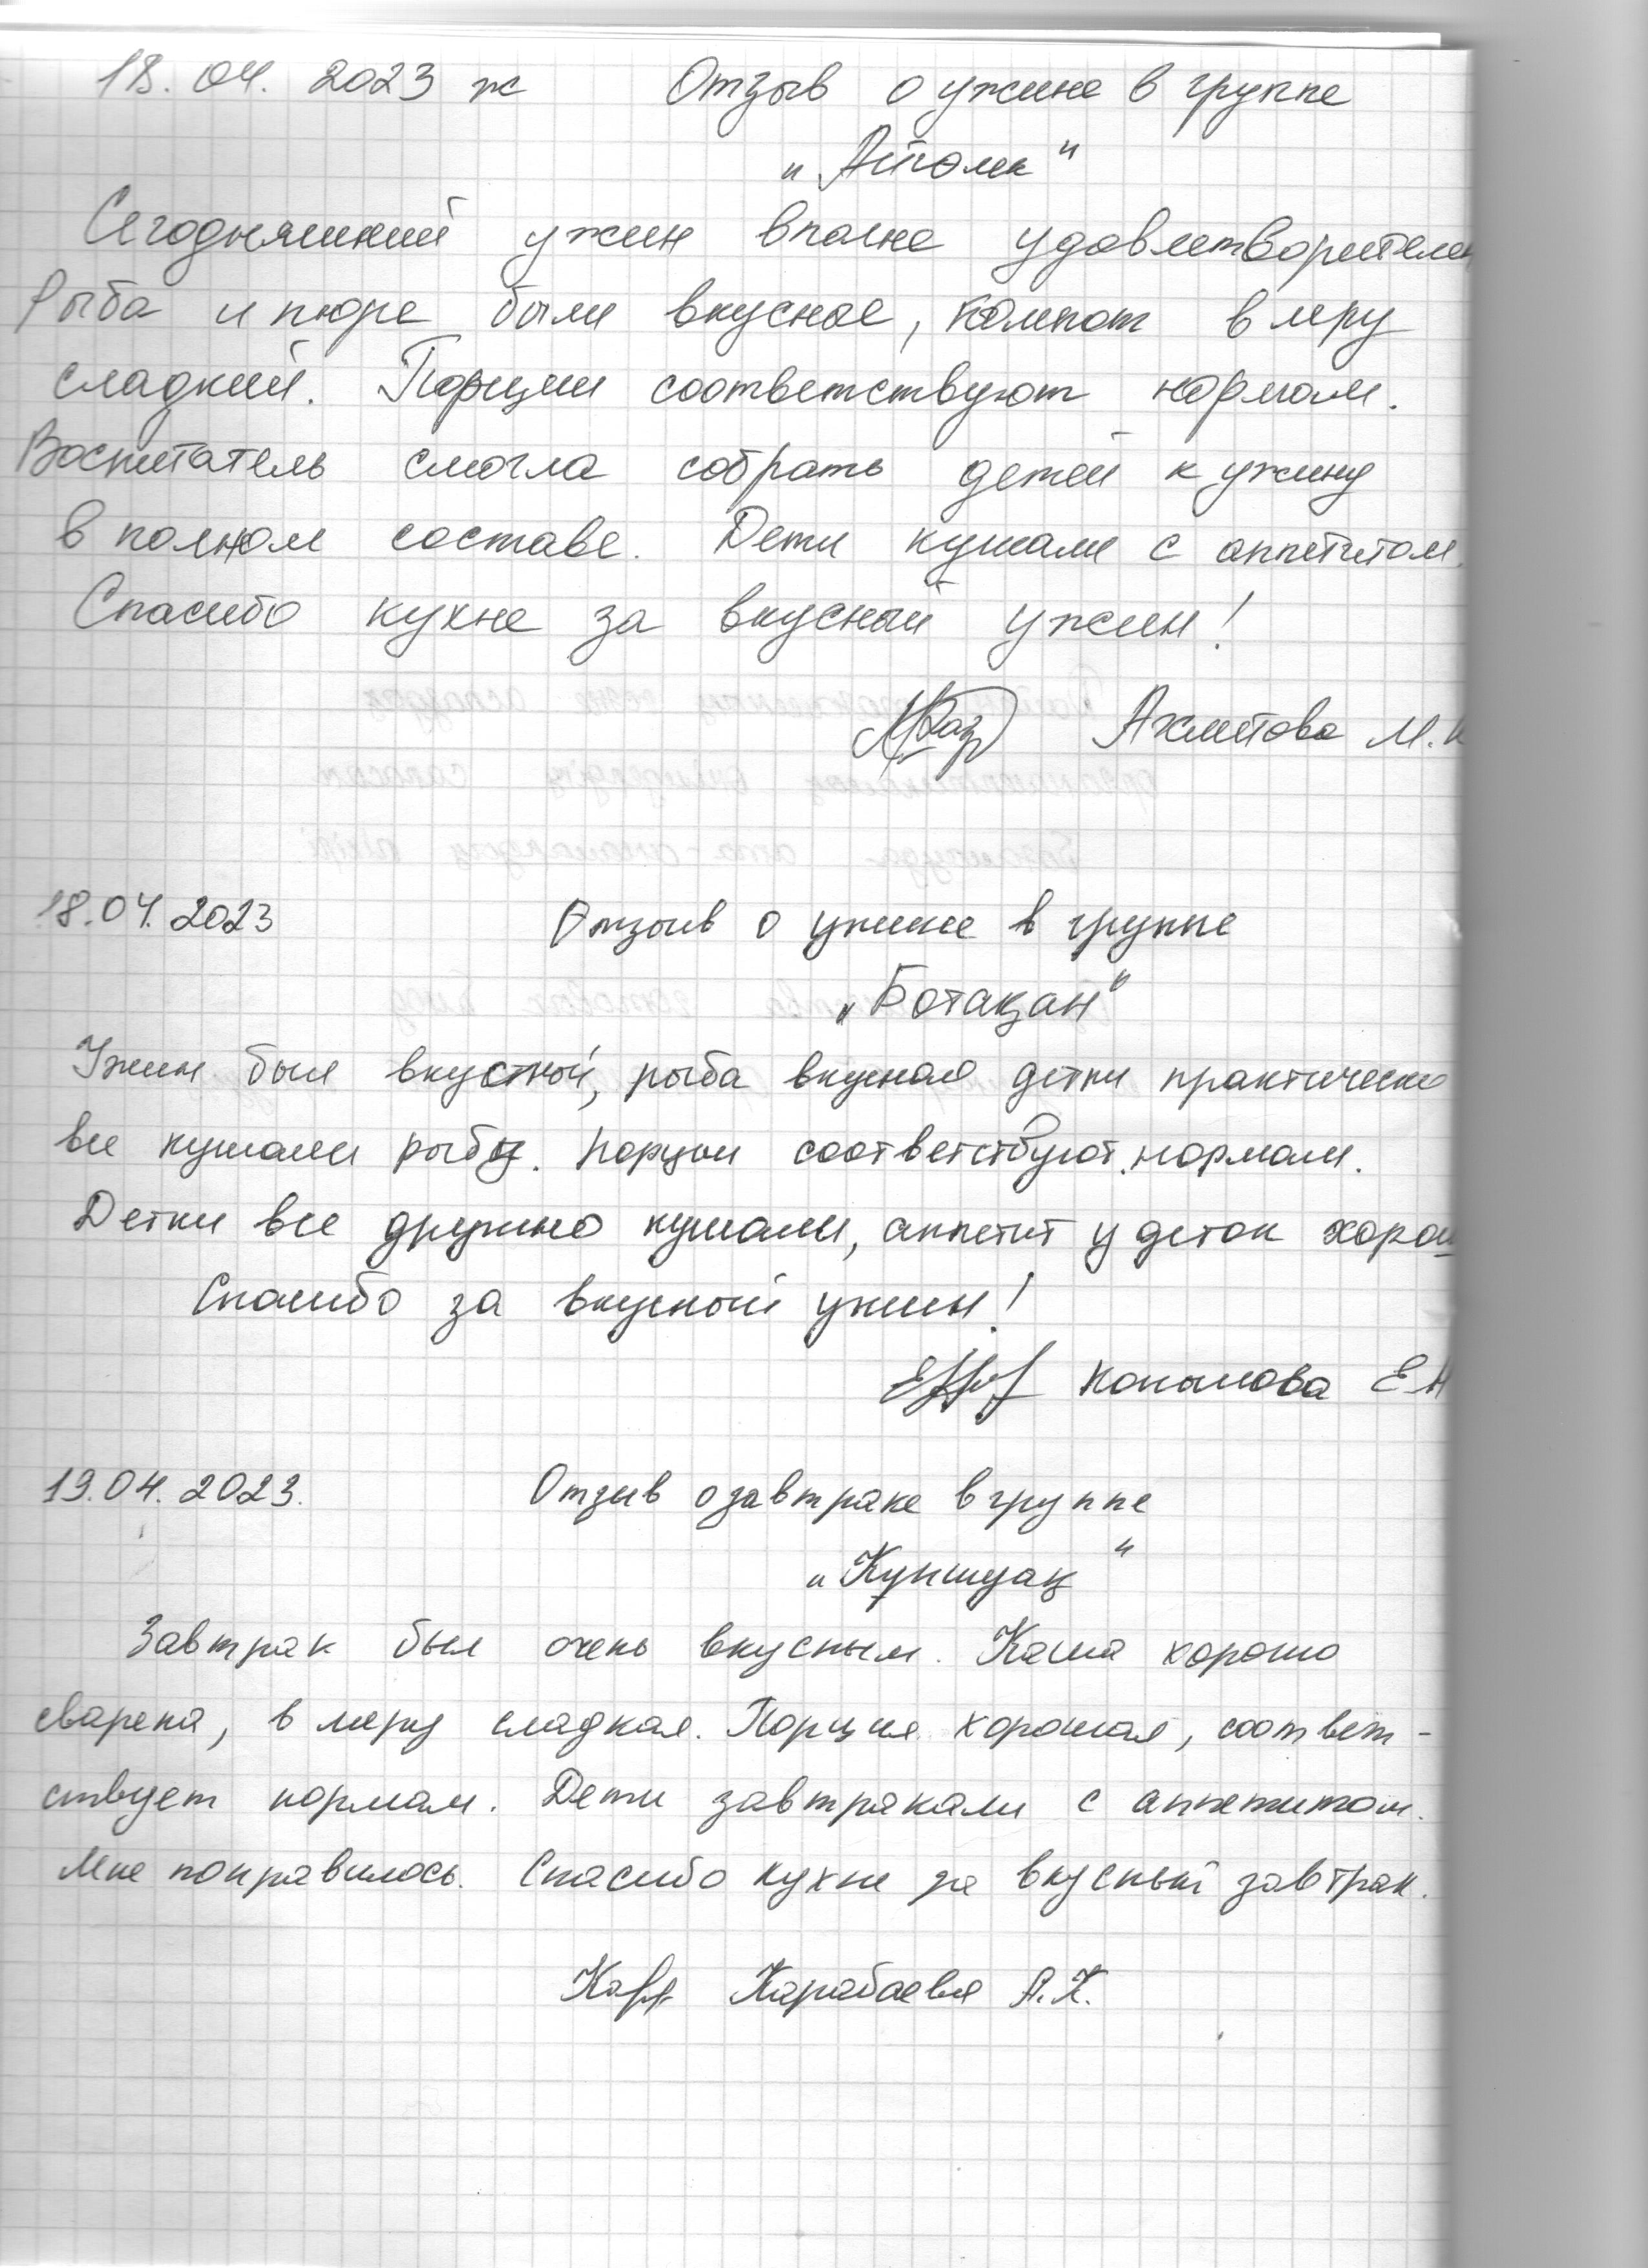 18.04.2023 ж Отзыв о ужине в группе
"Айголек"
Сегодняшний ужин вполне удовлетворителен
Рыба и пюре были вкусное, компот в меру
сладкий. Порции соответствуют нормам.
Воспитатель смогла собрать детей к ужину
в полном составе. Дети кушали с аппетитом.
Спасибо кухне за вкусный ужин!
Ахметова М.К
18.04.2023 Отзыв о ужине в группе
"Ботақан"
Ужин был вкусной, рыба вкусная детки практически
все кушали рыбу. Порции соответствуют нормам.
Детки все дружно кушали, аппетит у деток хорош
Спасибо за вкусный ужин!
Копылова Е.Н
19.04.2023. Отзыв о завтраке в группе
"Куншуақ"
Завтрак был очень вкусным. Каша хорошо
сварена, в меру сладкая. Порция хорошая, соответ-
ствует нормам. Дети завтракали с аппетитом.
Мне понравилось. Спасибо кухне за вкусный завтрак.
Карабаева А.К.